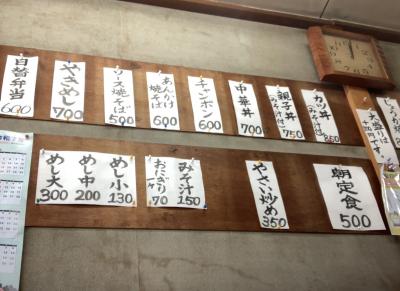 日替弁当
600
やきめし
700
ソース焼そば
500
あんかけ焼そば
600
チャンポン
600
中華丼
700
親子丼
(みそ汁付)
750
カツ丼
(みそ汁付)
850
めし大
300
めし中
200
めし小
130
おにぎり
一ケ
70
みそ汁
150
やさい炒め
350
朝定食
500